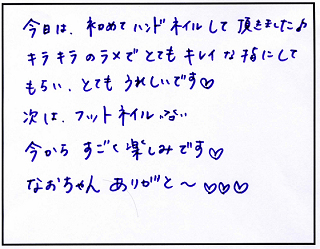 今日は、初めてハンドネイルして頂きました♪
キラキラのラメでとてもキレイな指にして
もらい、とてもうれしいです♡
次は、フットネイル
今から すごく楽しみです♡
なおちゃん ありがと〜♡♡♡